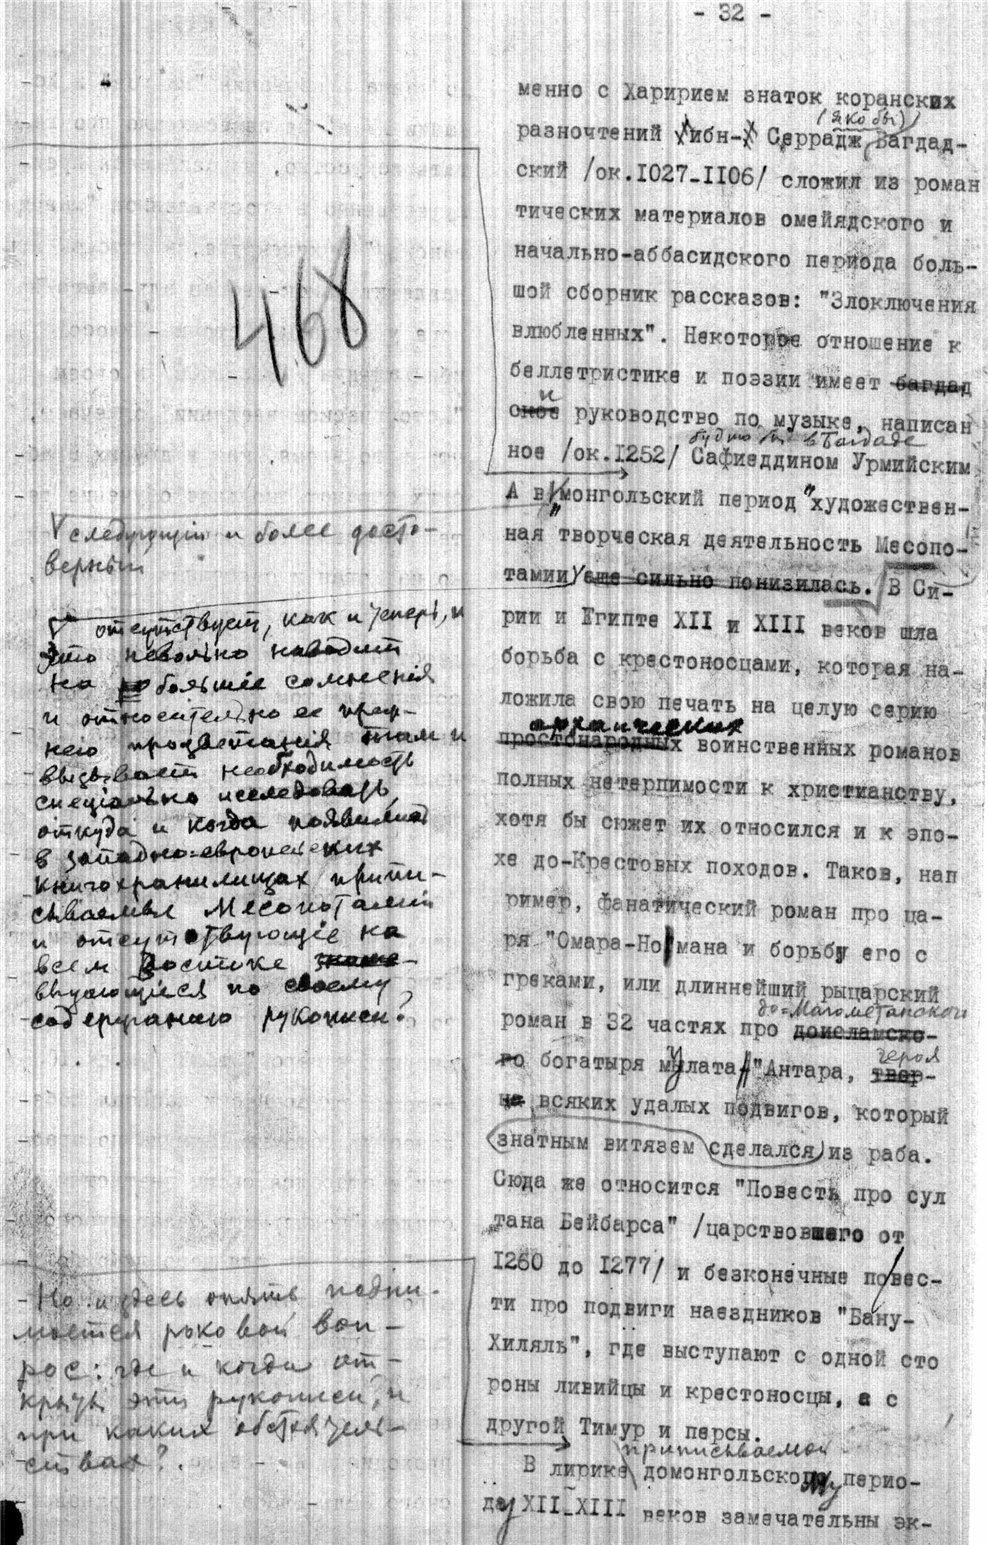 - 32 -
менно с Харирием знаток коранских
(якобы)
разночтений ибн- Серрадж Багдад-
ский /ок.1027-1106/ сложил из роман
тических материалов омейядского и
начально-аббасидского периода боль-
шой сборник рассказов: "Злоключения
влюбленных". Некоторое отношение к
беллетристике и поэзии имеет багдад
ское руководство по музыке, написан
будто бы в Багдаде
ное /ок.1252/ Сафиеддином Урмийским
А в монгольский период "художествен-
ная творческая деятельность Месопо-
тамии еще сильно понизилась. В Си-
рии и Египте XII и XIII веков шла
борьба с крестоносцами, которая на-
ложила свою печать на целую серию
архаических
простонародных воинственных романов
полных нетерпимости к христианству,
хотя бы сюжет их относился и к эпо-
хе до-Крестовых походов. Таков, нап
ример, фанатический роман про ца-
ря "Омара-Номана и борьбу его с
греками, или длиннейший рыцарский
до-Магометанского
роман в 32 частях про доисламско-
го богатыря мулата "Антара, твор-
героя
ца всяких удалых подвигов, который
знатным витязем сделался из раба.
Сюда же относится "Повесть про сул
тана Бейбарса" /царствовшего от
1260 до 1277/ и безконечные повес-
ти про подвиги наездников "Бану-
Хиляль", где выступают с одной сто
роны ливийцы и крестоносцы, а с
другой Тимур и персы.
приписываемой
В лирике домонгольскому перио-
ду XII-XIII веков замечательны эк-
468
следующий и более досто-
верный
отсутствует, как и теперь, и
это невольно наводит
на большие сомнения
и относительно ее преж-
него процветания там и
вызывает необходимость
специально исследовать
откуда и когда появились
в западно-европейских
книгохранилищах припи-
сываемые Месопотамии
и отсутствующие на
всем Востоке
выдающиеся по своему
содержанию рукописи?
Но и здесь опять подни-
мается роковой воп-
рос: где и когда от-
крыты эти рукописи, и
при каких обстоятель-
ствах?